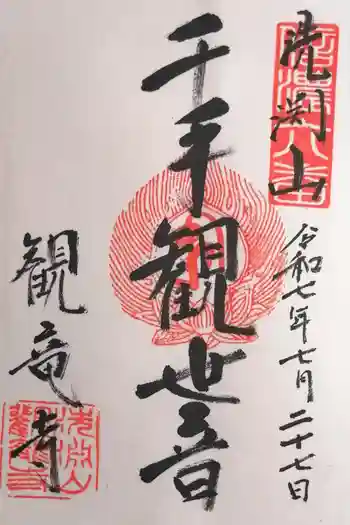 洗渕山
令和七年七月二十七日
千手観世音
観竜寺